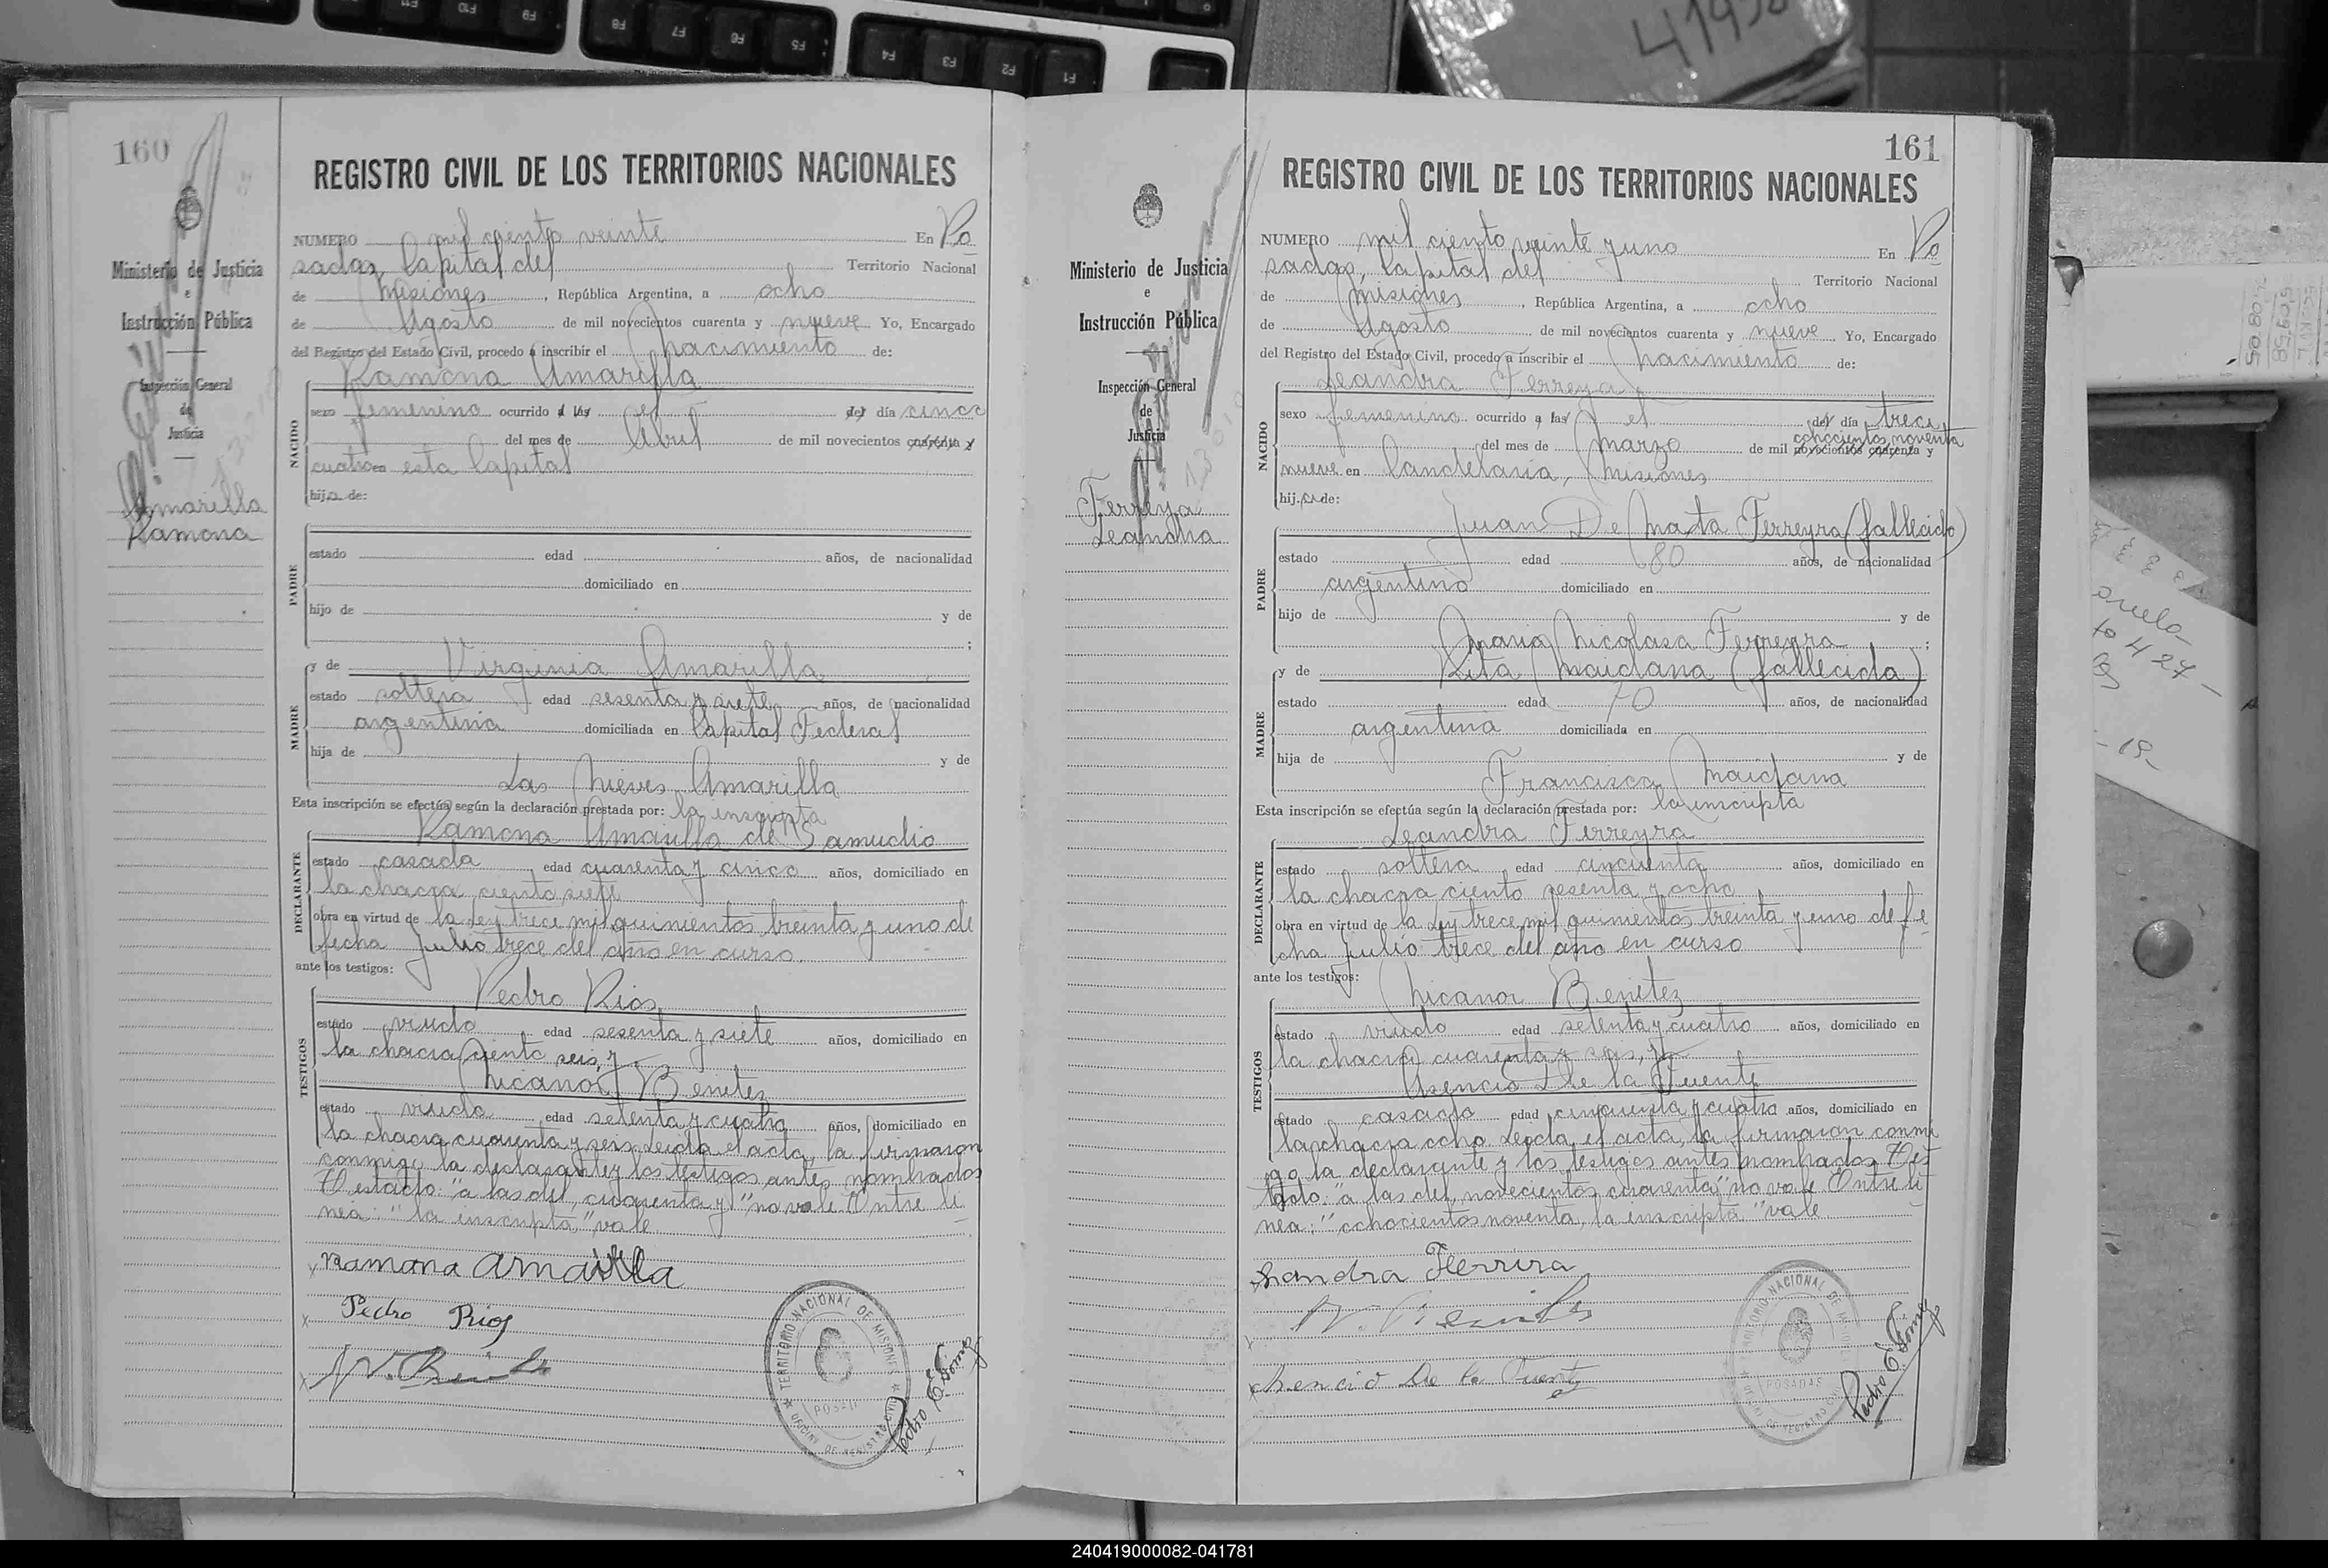 160
REGISTRO CIVIL DE LOS TERRITORIOS NACIONALES
Ministerio de Justicia
e
Instrucción Pública
Inspección General
de
Justicia
Amarilla
Ramona
NUMERO mil ciento veinte En Po
sadas, Capital del Territorio Nacional
de Misiones, República Argentina, a ocho
de Agosto de mil novecientos cuarenta y nueve Yo, Encargado
del Registro del Estado Civil, procedo a inscribir el nacimiento de:
Ramona Amarilla
NACIDO
sexo femenino ocurrido a las el del día cinco
del mes de Abril de mil novecientos cuarenta y
cuatro en esta Capital
hija de:
PADRE
estado edad años, de nacionalidad
domiciliado en
hijo de y de
;
y de Virginia Amarilla
MADRE
estado soltera edad sesenta y siete años, de nacionalidad
argentina domiciliada en Capital Federal
hija de y de
Las Nieves Amarilla
Esta inscripción se efectúa según la declaración prestada por: la inscripta
Ramona Amarilla de Samudio
DECLARANTE
estado casada edad cuarenta y cinco años, domiciliado en
la chacra ciento siete
obra en virtud de la Ley trece mil quinientos treinta y uno de
fecha Julio trece del año en curso.
ante los testigos:
Pedro Rios
TESTIGOS
estado viudo edad sesenta y siete años, domiciliado en
la chacra ciento seis, y
Nicanor Benitez
estado viudo edad setenta y cuatro años, domiciliado en
la chacra cuarenta y seis Leida el acta, la firmaron
conmigo la declarante y los testigos antes nombrados
Testado: "a las del, cuarenta y" no vale. Entre li
nea: "la inscripta" vale
Ramona Amarilla
Pedro Rios
N. Benitez
TERRITORIO NACIONAL DE MISIONES
POSADAS
OFICINA DE REGISTRO CIVIL
Pedro E. Gómez
161
REGISTRO CIVIL DE LOS TERRITORIOS NACIONALES
Ministerio de Justicia
e
Instrucción Pública
Inspección General
de
Justicia
Ferreyra
Leandra
NUMERO mil ciento veinte y uno En Po
sadas, Capital del Territorio Nacional
de Misiones, República Argentina, a ocho
de Agosto de mil novecientos cuarenta y nueve Yo, Encargado
del Registro del Estado Civil, procedo a inscribir el nacimiento de:
Leandra Ferreyra
NACIDO
sexo femenino ocurrido a las el del día trece
ochocientos noventa
del mes de Marzo de mil novecientos cuarenta y
nueve en Candelaria, Misiones
hija de:
Juan De Mata Ferreyra (fallecido)
PADRE
estado edad 80 años, de nacionalidad
argentino domiciliado en
hijo de y de
Maria Nicolasa Ferreyra ;
y de Rita Maidana (fallecida)
MADRE
estado edad 70 años, de nacionalidad
argentina domiciliada en
hija de y de
Francisca Maidana
Esta inscripción se efectúa según la declaración prestada por: la inscripta
Leandra Ferreyra
DECLARANTE
estado soltera edad cincuenta años, domiciliado en
la chacra ciento sesenta y ocho
obra en virtud de la Ley trece mil quinientos treinta y uno de fe
cha Julio trece del año en curso
ante los testigos:
Nicanor Benitez
TESTIGOS
estado viudo edad setenta y cuatro años, domiciliado en
la chacra cuarenta y seis, y
Asencio De la Fuente
estado casado edad cincuenta y cuatro años, domiciliado en
la chacra ocho Leida el acta, la firmaron conmi
go la declarante y los testigos antes nombrados Tes
tado: "a las del, novecientos cuarenta" no vale Entre li
nea: "ochocientos noventa, la inscripta" vale
Leandra Ferrira
N. Benitez
Asencio De la Fuente
TERRITORIO NACIONAL DE MISIONES
POSADAS
OFICINA DE REGISTRO CIVIL
Pedro E. Gómez
F9
F8
F7
F6
F5
F4
F3
F2
F1
240419000082-041781